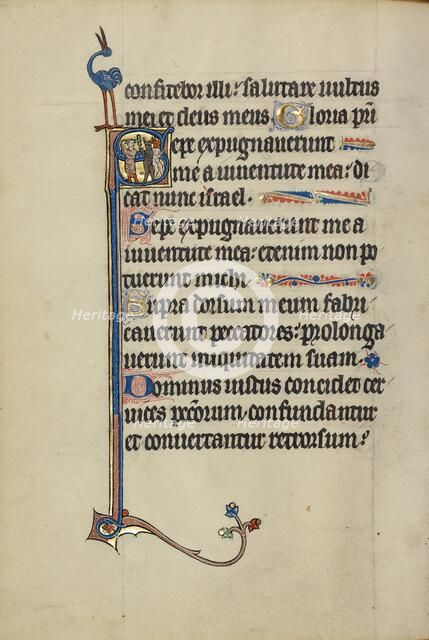 confitebor illi: salutare uultus
mei et deus meus. Gloria pri
Sepe expugnauerunt
me a iuuentute mea: di
cat nunc israel.
Sepe expugnauerunt me a
iuuentute mea: etenim non po
tuerunt michi.
Supra dorsum meum fabri
cauerunt peccatores: prolonga
uerunt iniquitatem suam.
Dominus iustus concidet cer
uices pccorum: confundantur
et conuertantur retrorsum:
Heritage
Heritage
Heritage
Heritage
Heritage